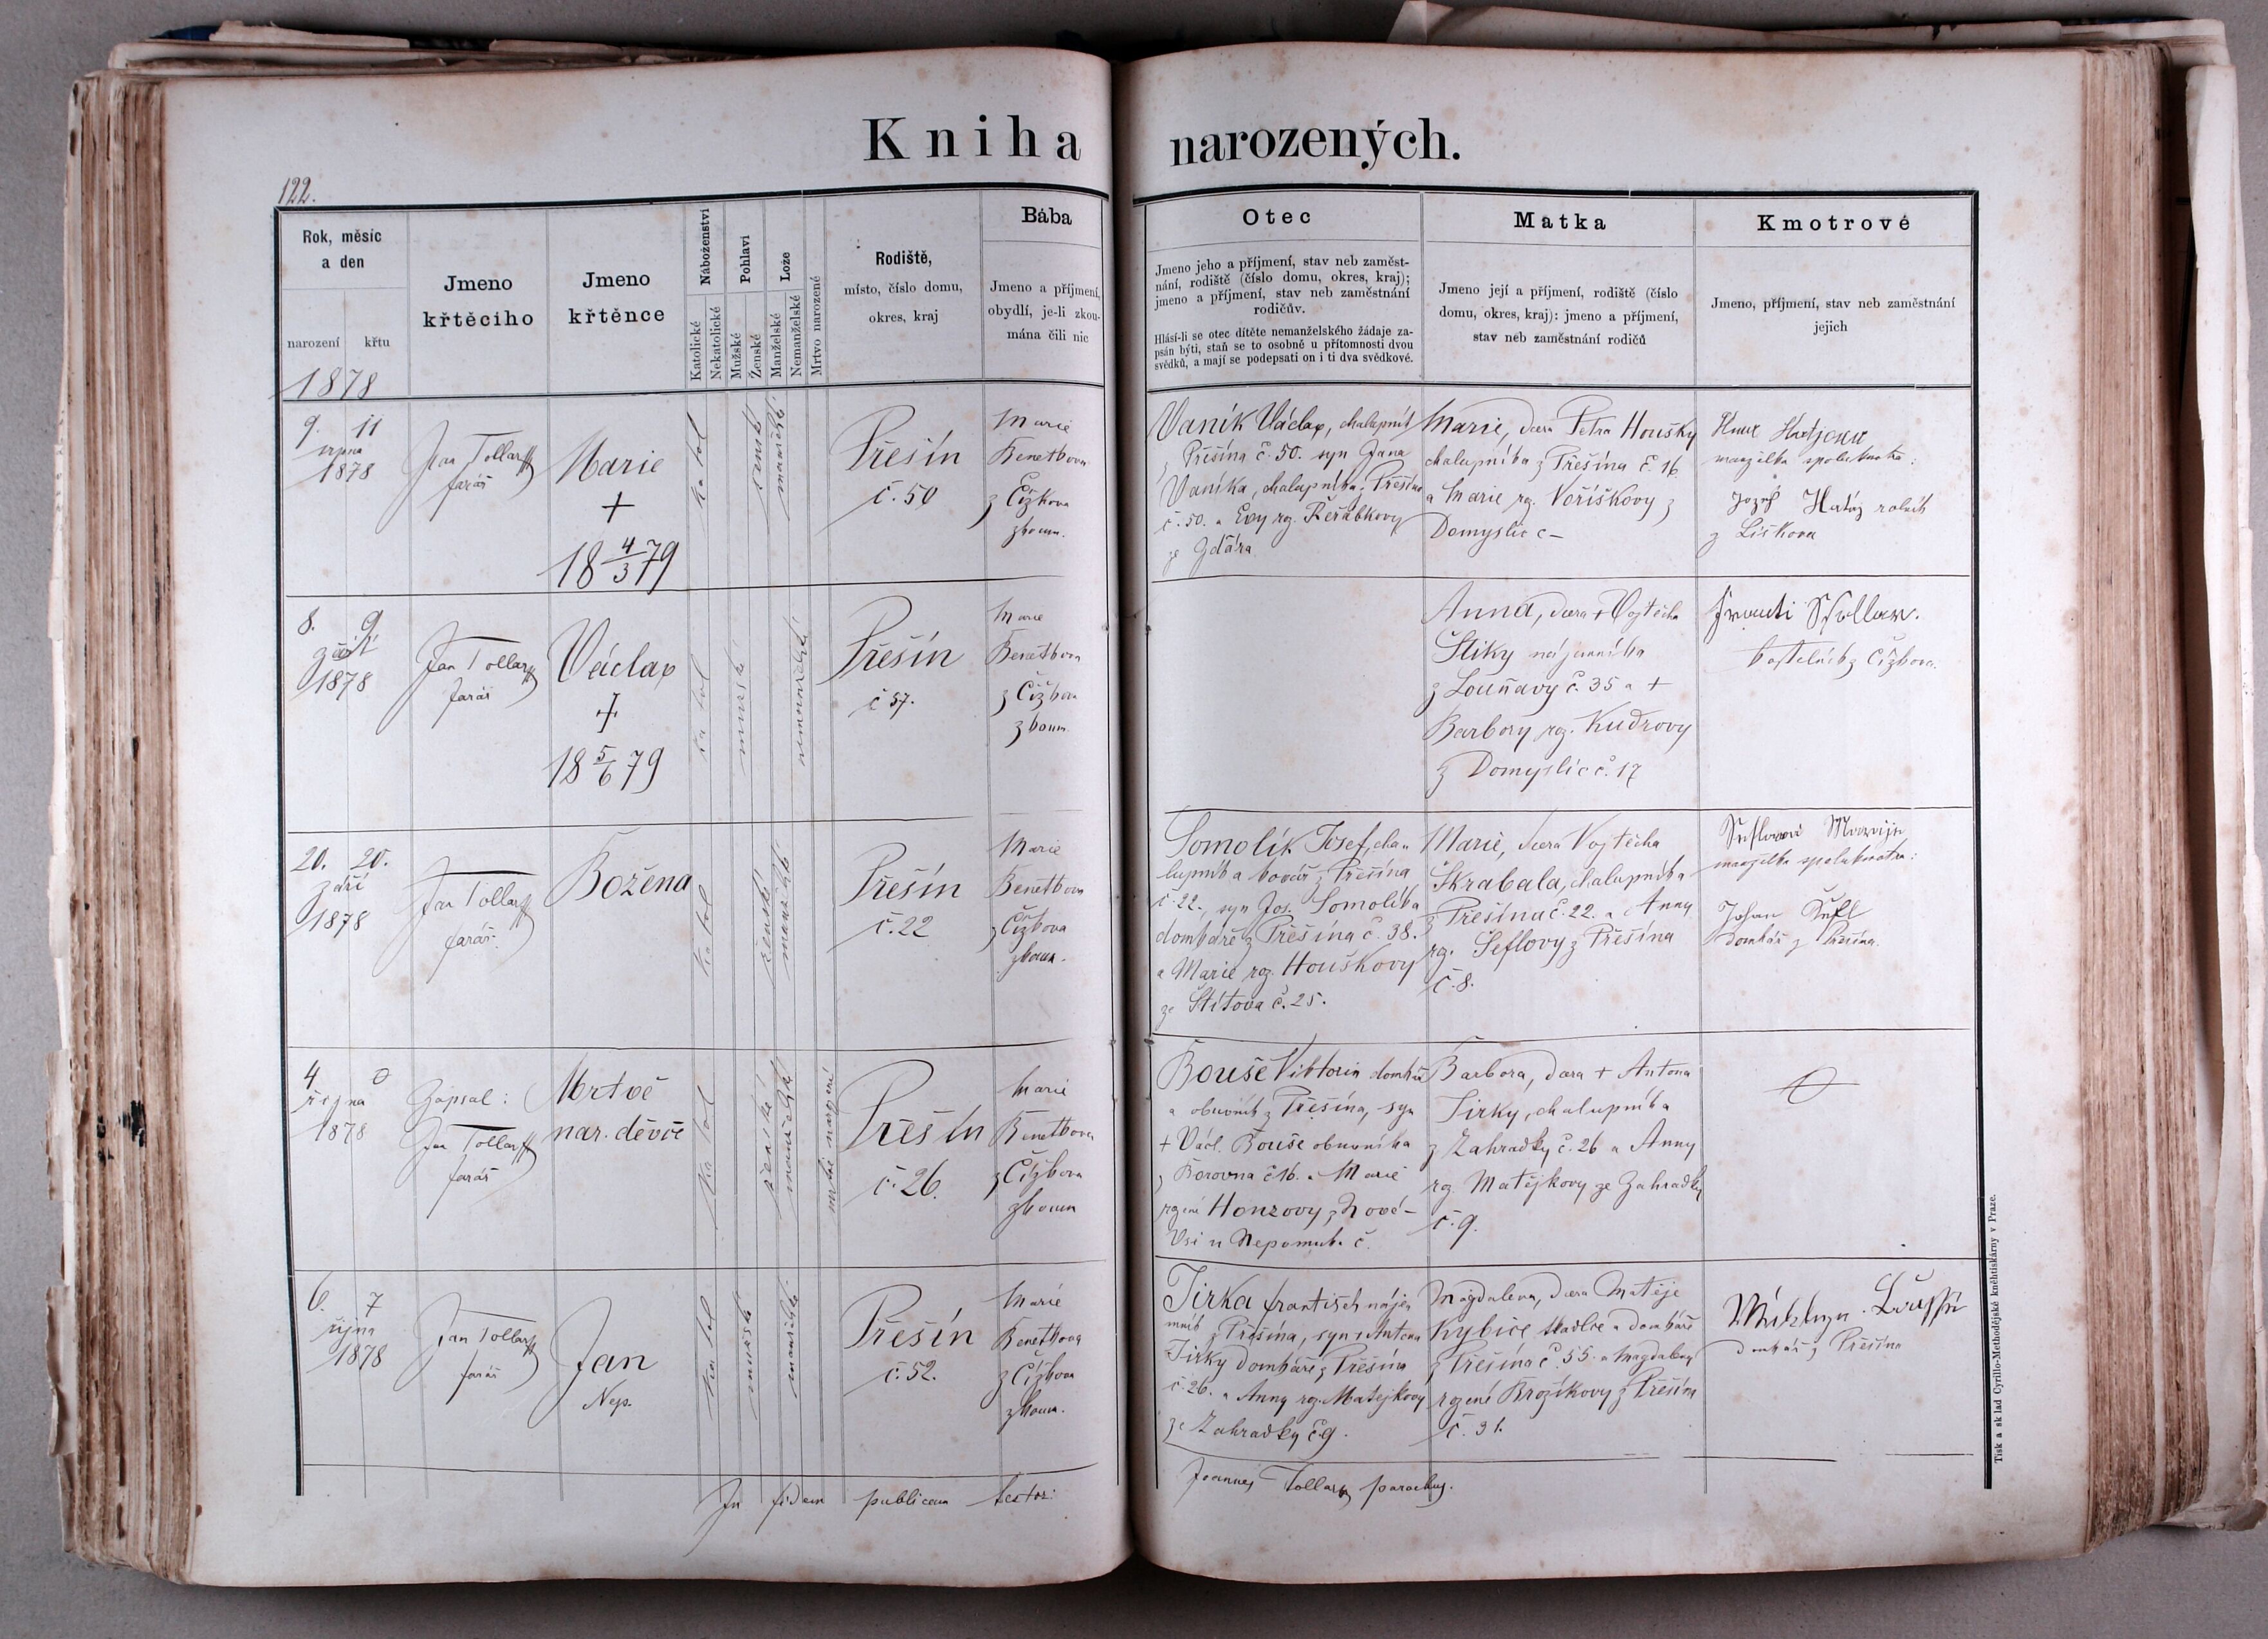 Kniha narozených.
122.
Rok, měsíc
a den
narození křtu
1878
Jmeno
křtěcího
Jmeno
křtěnce
Náboženství
Katolické
Nekatolické
Pohlaví
Mužské
Ženské
Lože
Manželské
Nemanželské
Mrtvo narozené
Rodiště,
místo, číslo domu,
okres, kraj
Bába
Jmeno a příjmení,
obydlí, je-li zkou-
mána čili nic
Otec
Jmeno jeho a příjmení, stav neb zaměst-
nání, rodiště (číslo domu, okres, kraj);
jmeno a příjmení, stav neb zaměstnání
rodičův.
Hlásí-li se otec dítěte nemanželského žádaje za-
psán býti, staň se to osobně u přítomnosti dvou
svědků, a mají se podepsati on i ti dva svědkové.
Matka
Jmeno její a příjmení, rodiště (číslo
domu, okres, kraj): jmeno a příjmení,
stav neb zaměstnání rodičů
Kmotrové
Jmeno, příjmení, stav neb zaměstnání
jejich
9. 11
srpna
1878
Jan Tollar
farář
Marie
+
18 4/3 79
katol
ženské
manželské
Přešín
č. 50
Marie
Benetkova
z Čížkova
zkoum.
Vaník Václav, chalupník
z Přešína č. 50. syn Jana
Vaníka, chalupníka z Přešína
č. 50. a Evy rz. Jeřábkovy
ze Zdára
Marie, dcera Petra Houšky
chalupníka z Přešína č. 16
a Marie rz. Voříškovy z
Domyslic č –
manželka spolukmotra:
Jozef rolník
z Liškova
8. 9
září
1878
Jan Tollar
farář
Václav
+
18 5/6 79
katol
mužské
nemanželské
Přešín
č 57.
Marie
Benetkova
z Čížkova
zkoum.
Anna, dcera + Vojtěcha
Štiky nájemníka
z Louňavy č. 35 a +
Barbory rz. Kudrovy
z Domyslic č. 17
kostelník z Čížkova.
20. 20.
září
1878
Jan Tollar
farář.
Božena
katol
ženské
manželské
Přešín
č. 22
Marie
Benetkova
z Čížkova
zkoum.
Somolík Josef, cha-
lupník a kovář z Přešína
č. 22., syn Jos. Somolíka
domkáře z Přešína č. 38.
a Marie rz. Houškovy
ze Štítova č. 25.
Marie, dcera Vojtěcha
Škrabala, chalupníka
z Přešína č. 22. a Anny
rz. Šeflovy z Přešína
č. 8.
manželka spolukmotra:
Johan Šefl
domkář z Přešína.
4 0
října
1878
Zapsal:
Jan Tollar
farář
Mrtvě
nar. děvče
katol
ženské
manželské
mrtvě narozené
Přešín
č. 26.
Marie
Benetkova
z Čížkova
zkoum
Bouše Viktorin domkář
a obuvník z Přešína, syn
+ Václ. Bouše obuvníka
z Borovna č 16. a Marie
rzené Honzovy z Nové-
Vsi u Nepomuka č.
Barbora, dcera + Antona
Jirky, chalupníka
z Zahradky č. 26 a Anny
rz. Matějkovy ze Zahradky
č. 9.
6. 7
října
1878
Jan Tollar
farář
Jan
Nep.
katol
mužské
manželské
Přešín
č. 52.
Marie
Benetkova
z Čížkova
zkoum.
Jirka František nájem
mník z Přešína, syn + Antona
Jirky domkáře z Přešína
č. 26. a Anny rz. Matejkovy
ze Zahradky č. 9.
Magdalena, dcera Matěje
Kybice tkadlce a domkáře
z Přešína č. 55. a Magdaleny
rzené Brozíkovy z Přešína
č. 31.
domkář z Přešína
In fidem publicam testor: Joannes Tollar parochus.
Tisk a sklad Cyrillo-Methodějské knihtiskárny v Praze.